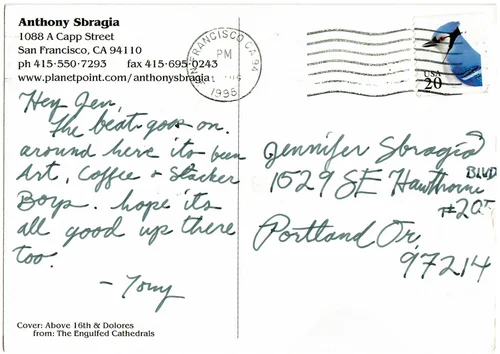 Anthony Sbragia
1088 A Capp Street
San Francisco, CA 94110
ph 415·550·7293 fax 415·695·0243
www.planetpoint.com/anthonysbragia
SAN FRANCISCO CA 94
PM
1995
USA
20
Hey Jen,
The beat goes on.
around here its been
Art, Coffee & Slacker
Boys. hope its
all good up there
too.
- Tony
Jennifer Sbragia
1529 SE Hawthorne BLVD
#205
Portland Or,
97214
Cover: Above 16th & Dolores
from: The Engulfed Cathedrals